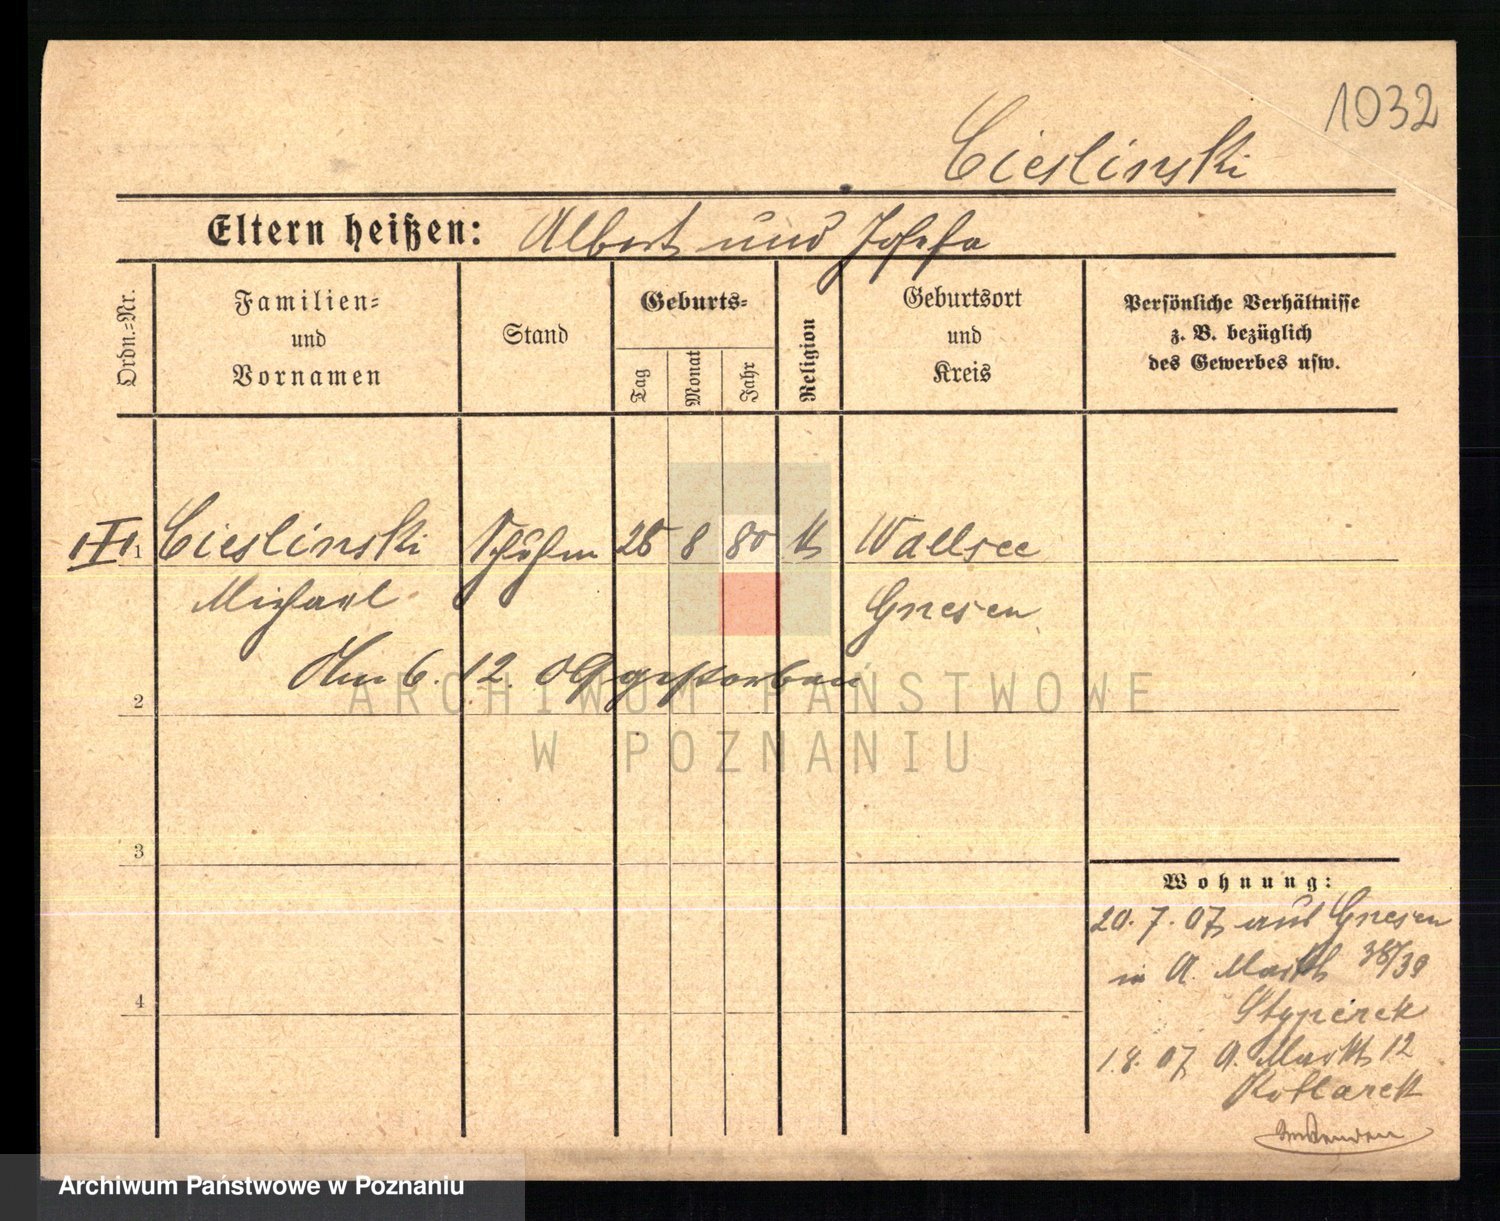 1032
Cieslinski
Eltern heißen: Albert und Josefa
Ordn.-Nr.
Familien-
und
Vornamen
Stand
Geburts-
Tag
Monat
Jahr
Religion
Geburtsort
und
Kreis
Persönliche Verhältnisse
z. B. bezüglich
des Gewerbes usw.
1 Cieslinski Schuhm 28 8 80 k Wallsee
Michael Gnesen
Am 6. 12. 09 gestorben
2
ARCHIWUM PAŃSTWOWE
W POZNANIU
3
4
Wohnung:
20. 7. 07 aus Gnesen
in A. Markt 38/39
Stypérek
1.8. 07 A. Markt 12
Kotlarek
Archiwum Państwowe w Poznaniu